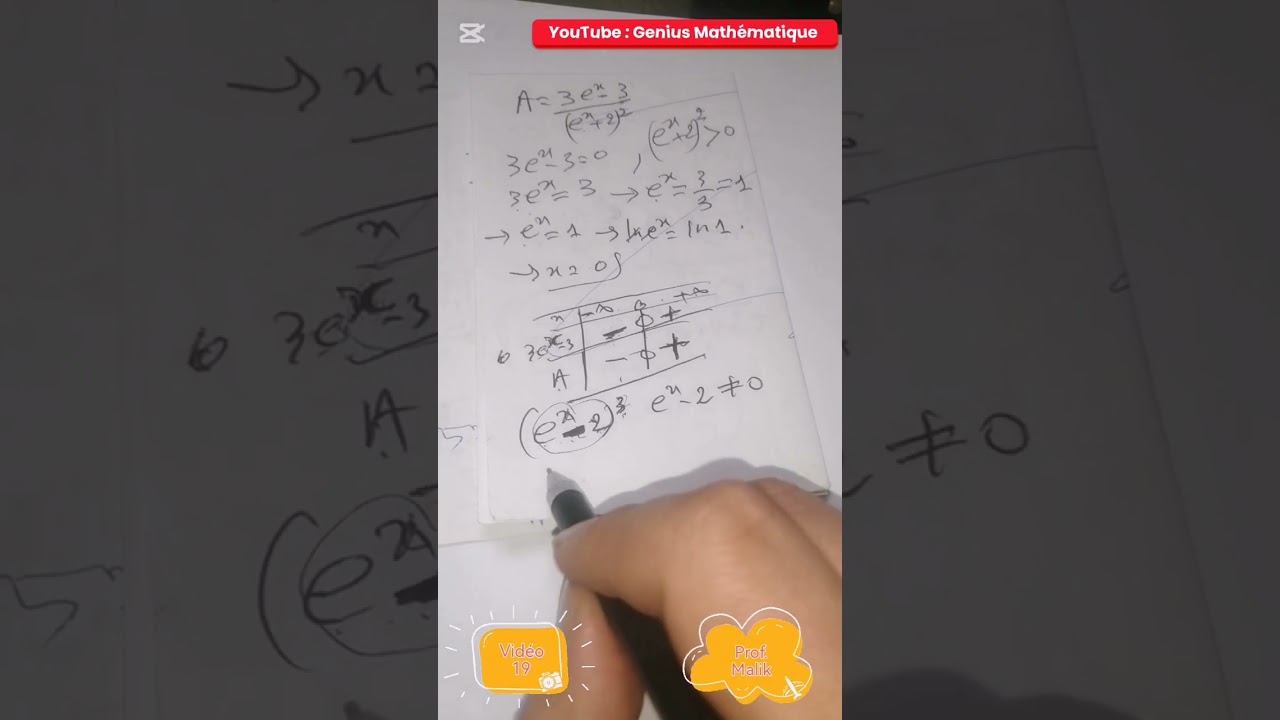 YouTube : Genius Mathématique
A = 3e^x - 3 / (e^x + 2)^2
3e^x - 3 = 0 , (e^x + 2)^2 > 0
3e^x = 3 → e^x = 3/3 = 1
→ e^x = 1 → ln e^x = ln 1 .
→ x = 0
x | -∞ 0 +∞
3e^x - 3 | - 0 +
A | - 0 +
(e^x - 2)^3 e^x - 2 ≠ 0
Vidéo
19
Prof.
Malik